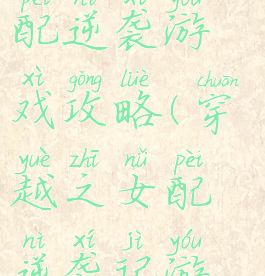 pèi nì xí yóu
配逆袭游
xì gōng lüè chuān
戏攻略(穿
yuè zhī nǚ pèi
越之女配
nì xí jì yóu
逆袭记游